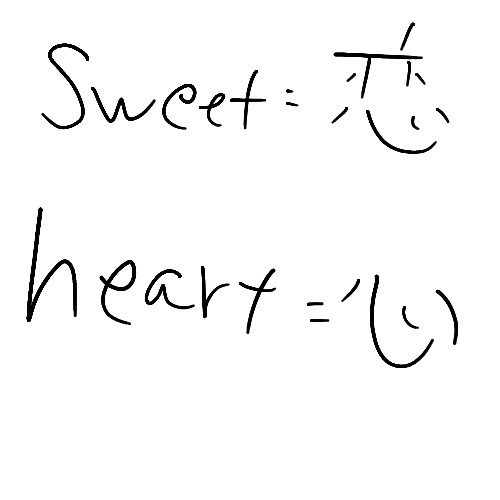 Sweet = 恋
heart = 心